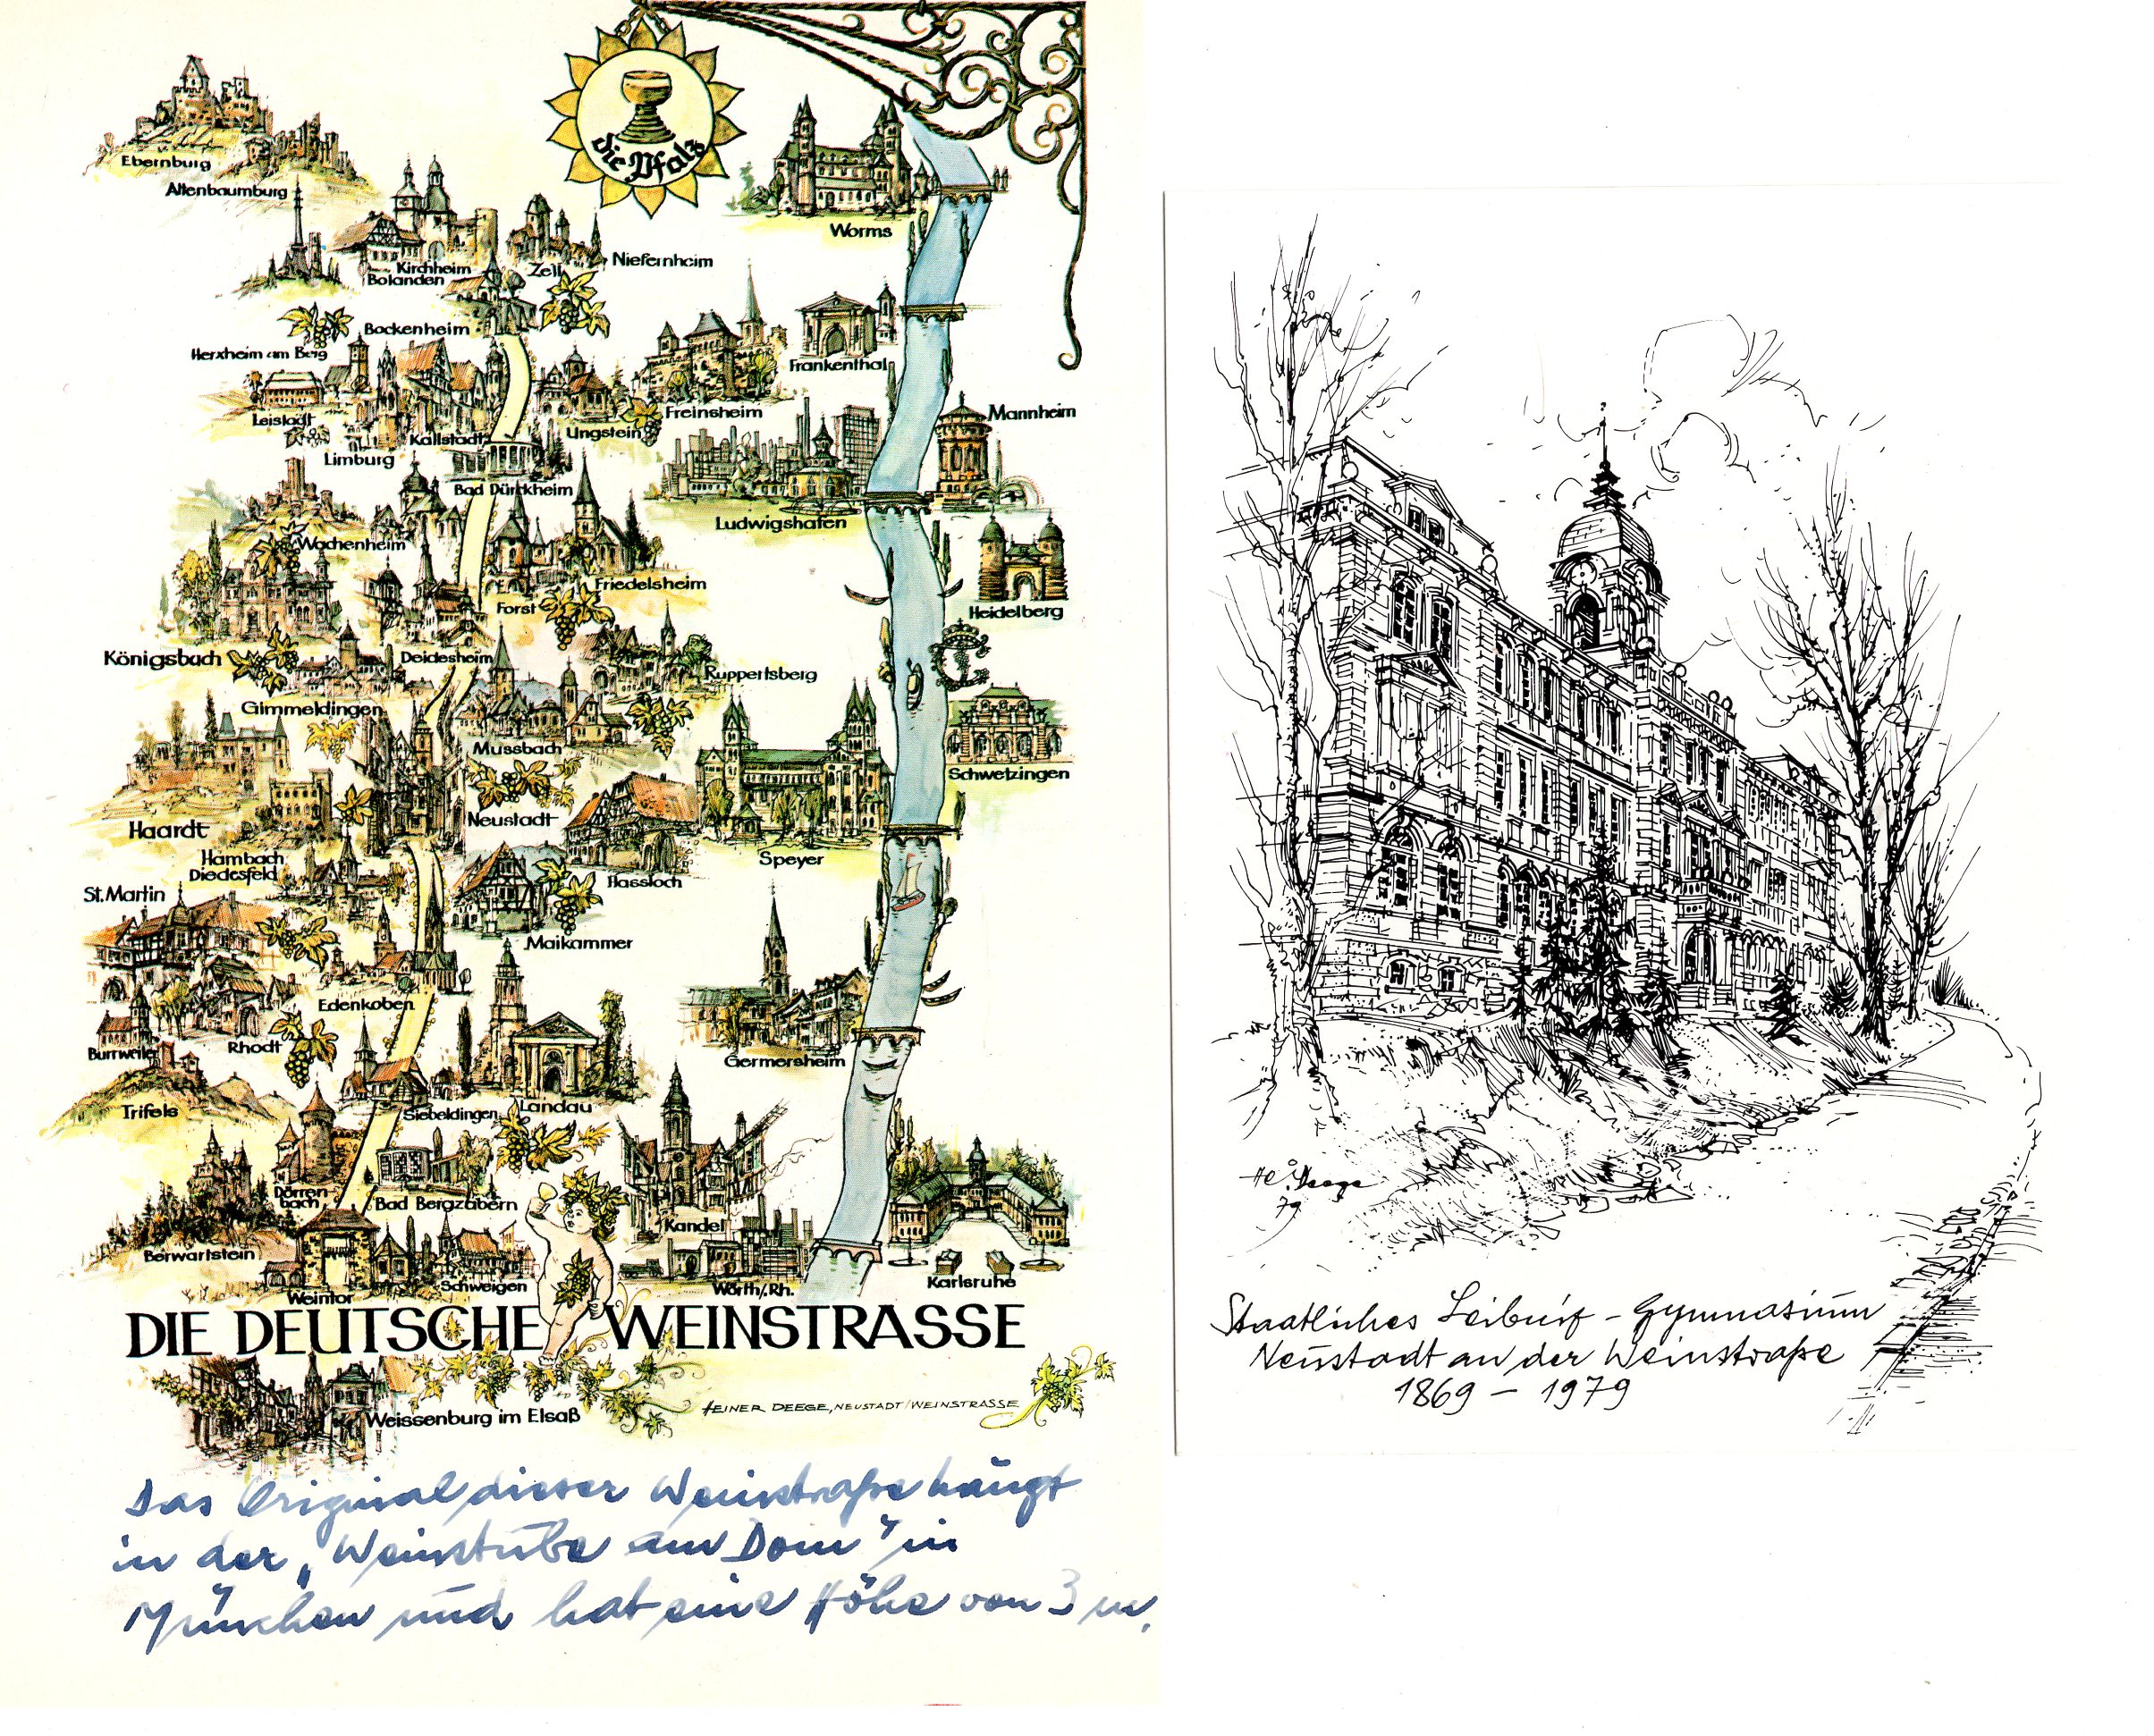 die Pfalz
Ebernburg
Altenbaumburg
Worms
Niefernheim
Kirchheim
Bolanden
Zell
Bockenheim
Herxheim am Berg
Frankenthal
Leistadt
Freinsheim
Mannheim
Kallstadt
Ungstein
Limburg
Bad Dürckheim
Ludwigshafen
Wachenheim
Friedelsheim
Forst
Heidelberg
Königsbach
Deidesheim
Ruppertsberg
Gimmeldingen
Mussbach
Schwetzingen
Haardt
Neustadt
Speyer
Hambach
Diedesfeld
Hassloch
St. Martin
Maikammer
Edenkoben
Burrweiler
Rhodt
Germersheim
Trifels
Siebeldingen
Landau
Dörren
bach
Bad Bergzabern
Kandel
Berwartstein
Weintor
Schweigen
Wörth/Rh.
Karlsruhe
DIE DEUTSCHE WEINSTRASSE
Weissenburg im Elsaß
HEINER DEEGE, NEUSTADT/WEINSTRASSE
Das Original dieser Weinstraße hängt
in der „Weinstube am Dom" in
München und hat eine Höhe von 3 m.
Hei. Deege
79
Staatliches Leibniz-Gymnasium
Neustadt an der Weinstraße
1869 – 1979